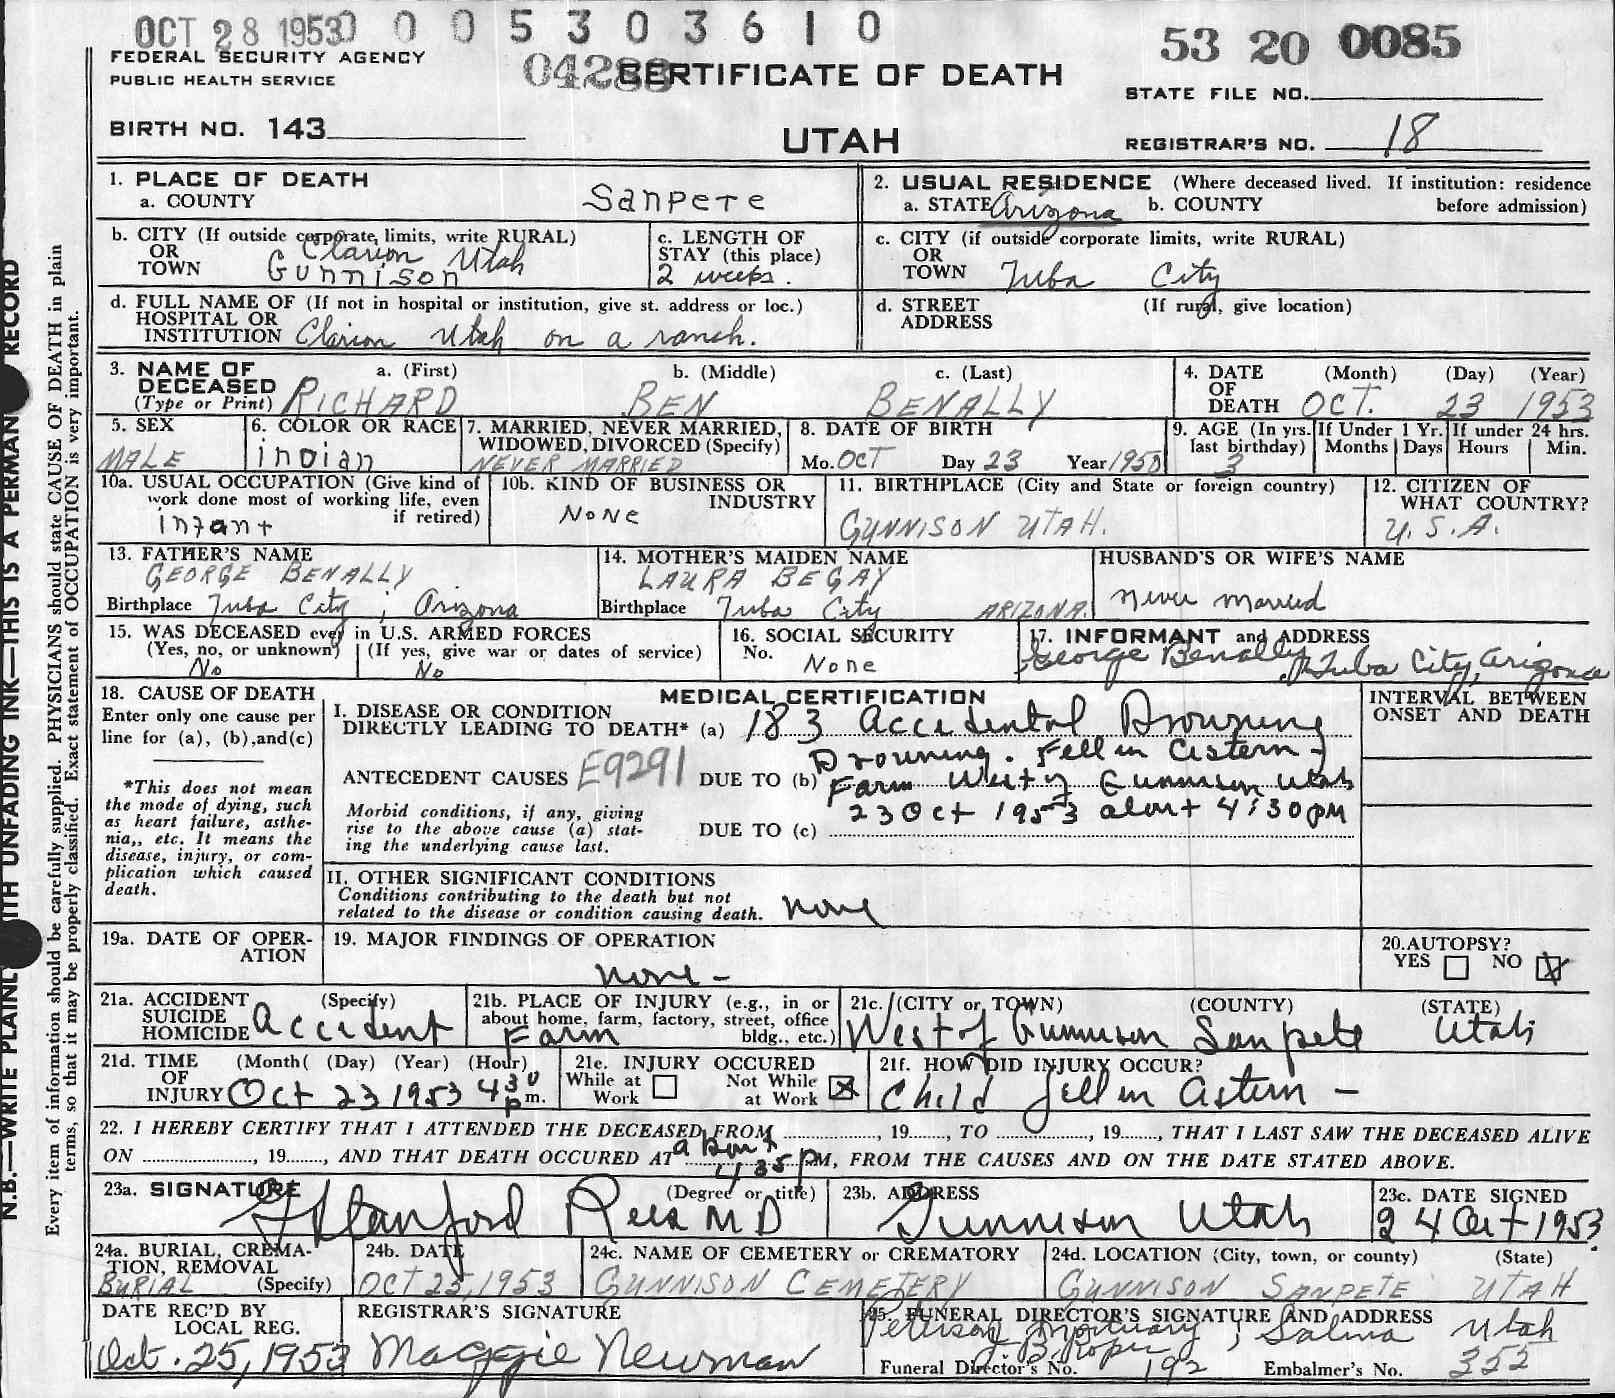 OCT 28 1953 0 0 5 3 0 3 6 1 0
53 20 0085
FEDERAL SECURITY AGENCY
PUBLIC HEALTH SERVICE
04288
CERTIFICATE OF DEATH
STATE FILE NO.
BIRTH NO. 143
UTAH
REGISTRAR'S NO. 18
1. PLACE OF DEATH
a. COUNTY Sanpete
2. USUAL RESIDENCE (Where deceased lived. If institution: residence before admission)
a. STATE Arizona b. COUNTY
b. CITY (If outside corporate limits, write RURAL)
OR TOWN Clarion Utah
Gunnison
c. LENGTH OF STAY (this place)
2 weeks.
c. CITY (if outside corporate limits, write RURAL)
OR TOWN Tuba City
d. FULL NAME OF (If not in hospital or institution, give st. address or loc.)
HOSPITAL OR
INSTITUTION Clarion Utah on a ranch.
d. STREET ADDRESS (If rural, give location)
3. NAME OF DECEASED (Type or Print)
a. (First) b. (Middle) c. (Last)
RICHARD BEN BENALLY
4. DATE OF DEATH (Month) (Day) (Year)
OCT. 23 1953
5. SEX
MALE
6. COLOR OR RACE
indian
7. MARRIED, NEVER MARRIED, WIDOWED, DIVORCED (Specify)
NEVER MARRIED
8. DATE OF BIRTH
Mo. OCT Day 23 Year 1950
9. AGE (In yrs. last birthday)
3
If Under 1 Yr. Months Days
If under 24 hrs. Hours Min.
10a. USUAL OCCUPATION (Give kind of work done most of working life, even if retired)
infant
10b. KIND OF BUSINESS OR INDUSTRY
NONE
11. BIRTHPLACE (City and State or foreign country)
GUNNISON UTAH.
12. CITIZEN OF WHAT COUNTRY?
U.S.A.
13. FATHER'S NAME
GEORGE BENALLY
Birthplace Tuba City, Arizona
14. MOTHER'S MAIDEN NAME
LAURA BEGAY
Birthplace Tuba City ARIZONA.
HUSBAND'S OR WIFE'S NAME
never married
15. WAS DECEASED ever in U.S. ARMED FORCES
(Yes, no, or unknown) (If yes, give war or dates of service)
No No
16. SOCIAL SECURITY
No. None
17. INFORMANT and ADDRESS
George Benally Tuba City, Arizona
18. CAUSE OF DEATH
Enter only one cause per line for (a), (b), and (c)
*This does not mean the mode of dying, such as heart failure, asthenia,, etc. It means the disease, injury, or complication which caused death.
MEDICAL CERTIFICATION
INTERVAL BETWEEN ONSET AND DEATH
I. DISEASE OR CONDITION
DIRECTLY LEADING TO DEATH* (a) 183 Accidental Drowning
Drowning. Fell in Cistern -
ANTECEDENT CAUSES E9291 DUE TO (b) Farm West of Gunnison Utah
23 Oct 1953 about 4:30 pm
Morbid conditions, if any, giving rise to the above cause (a) stating the underlying cause last.
DUE TO (c)
II. OTHER SIGNIFICANT CONDITIONS
Conditions contributing to the death but not related to the disease or condition causing death. none
19a. DATE OF OPERATION
19. MAJOR FINDINGS OF OPERATION
none -
20. AUTOPSY?
YES NO X
21a. ACCIDENT SUICIDE HOMICIDE (Specify)
Accident
21b. PLACE OF INJURY (e.g., in or about home, farm, factory, street, office bldg., etc.)
Farm
21c. (CITY or TOWN) (COUNTY) (STATE)
West of Gunnison Sanpete Utah
21d. TIME OF INJURY (Month( (Day) (Year) (Hour)
Oct 23 1953 430 pm.
21e. INJURY OCCURED
While at Work Not While at Work X
21f. HOW DID INJURY OCCUR?
Child fell in Cistern -
22. I HEREBY CERTIFY THAT I ATTENDED THE DECEASED FROM , 19 , TO , 19 , THAT I LAST SAW THE DECEASED ALIVE
ON , 19 , AND THAT DEATH OCCURED AT about 4:35 P M, FROM THE CAUSES AND ON THE DATE STATED ABOVE.
23a. SIGNATURE (Degree or title)
G Stanford Rees MD
23b. ADDRESS
Gunnison Utah
23c. DATE SIGNED
24 Oct 1953
24a. BURIAL, CREMATION, REMOVAL (Specify)
BURIAL
24b. DATE
OCT 25, 1953
24c. NAME OF CEMETERY or CREMATORY
GUNNISON CEMETERY
24d. LOCATION (City, town, or county) (State)
GUNNISON SANPETE UTAH
DATE REC'D BY LOCAL REG.
Oct. 25, 1953
REGISTRAR'S SIGNATURE
Maggie Newman
25. FUNERAL DIRECTOR'S SIGNATURE AND ADDRESS
Peterson Mortuary, Salina Utah
J. B. Roper
Funeral Director's No. 192 Embalmer's No. 352
N.B.—WRITE PLAINL ITH UNFADING INK—THIS IS A PERMAN RECORD
Every item of information should be carefully supplied. PHYSICIANS should state CAUSE OF DEATH in plain
terms, so that it may be properly classified. Exact statement of OCCUPATION is very important.